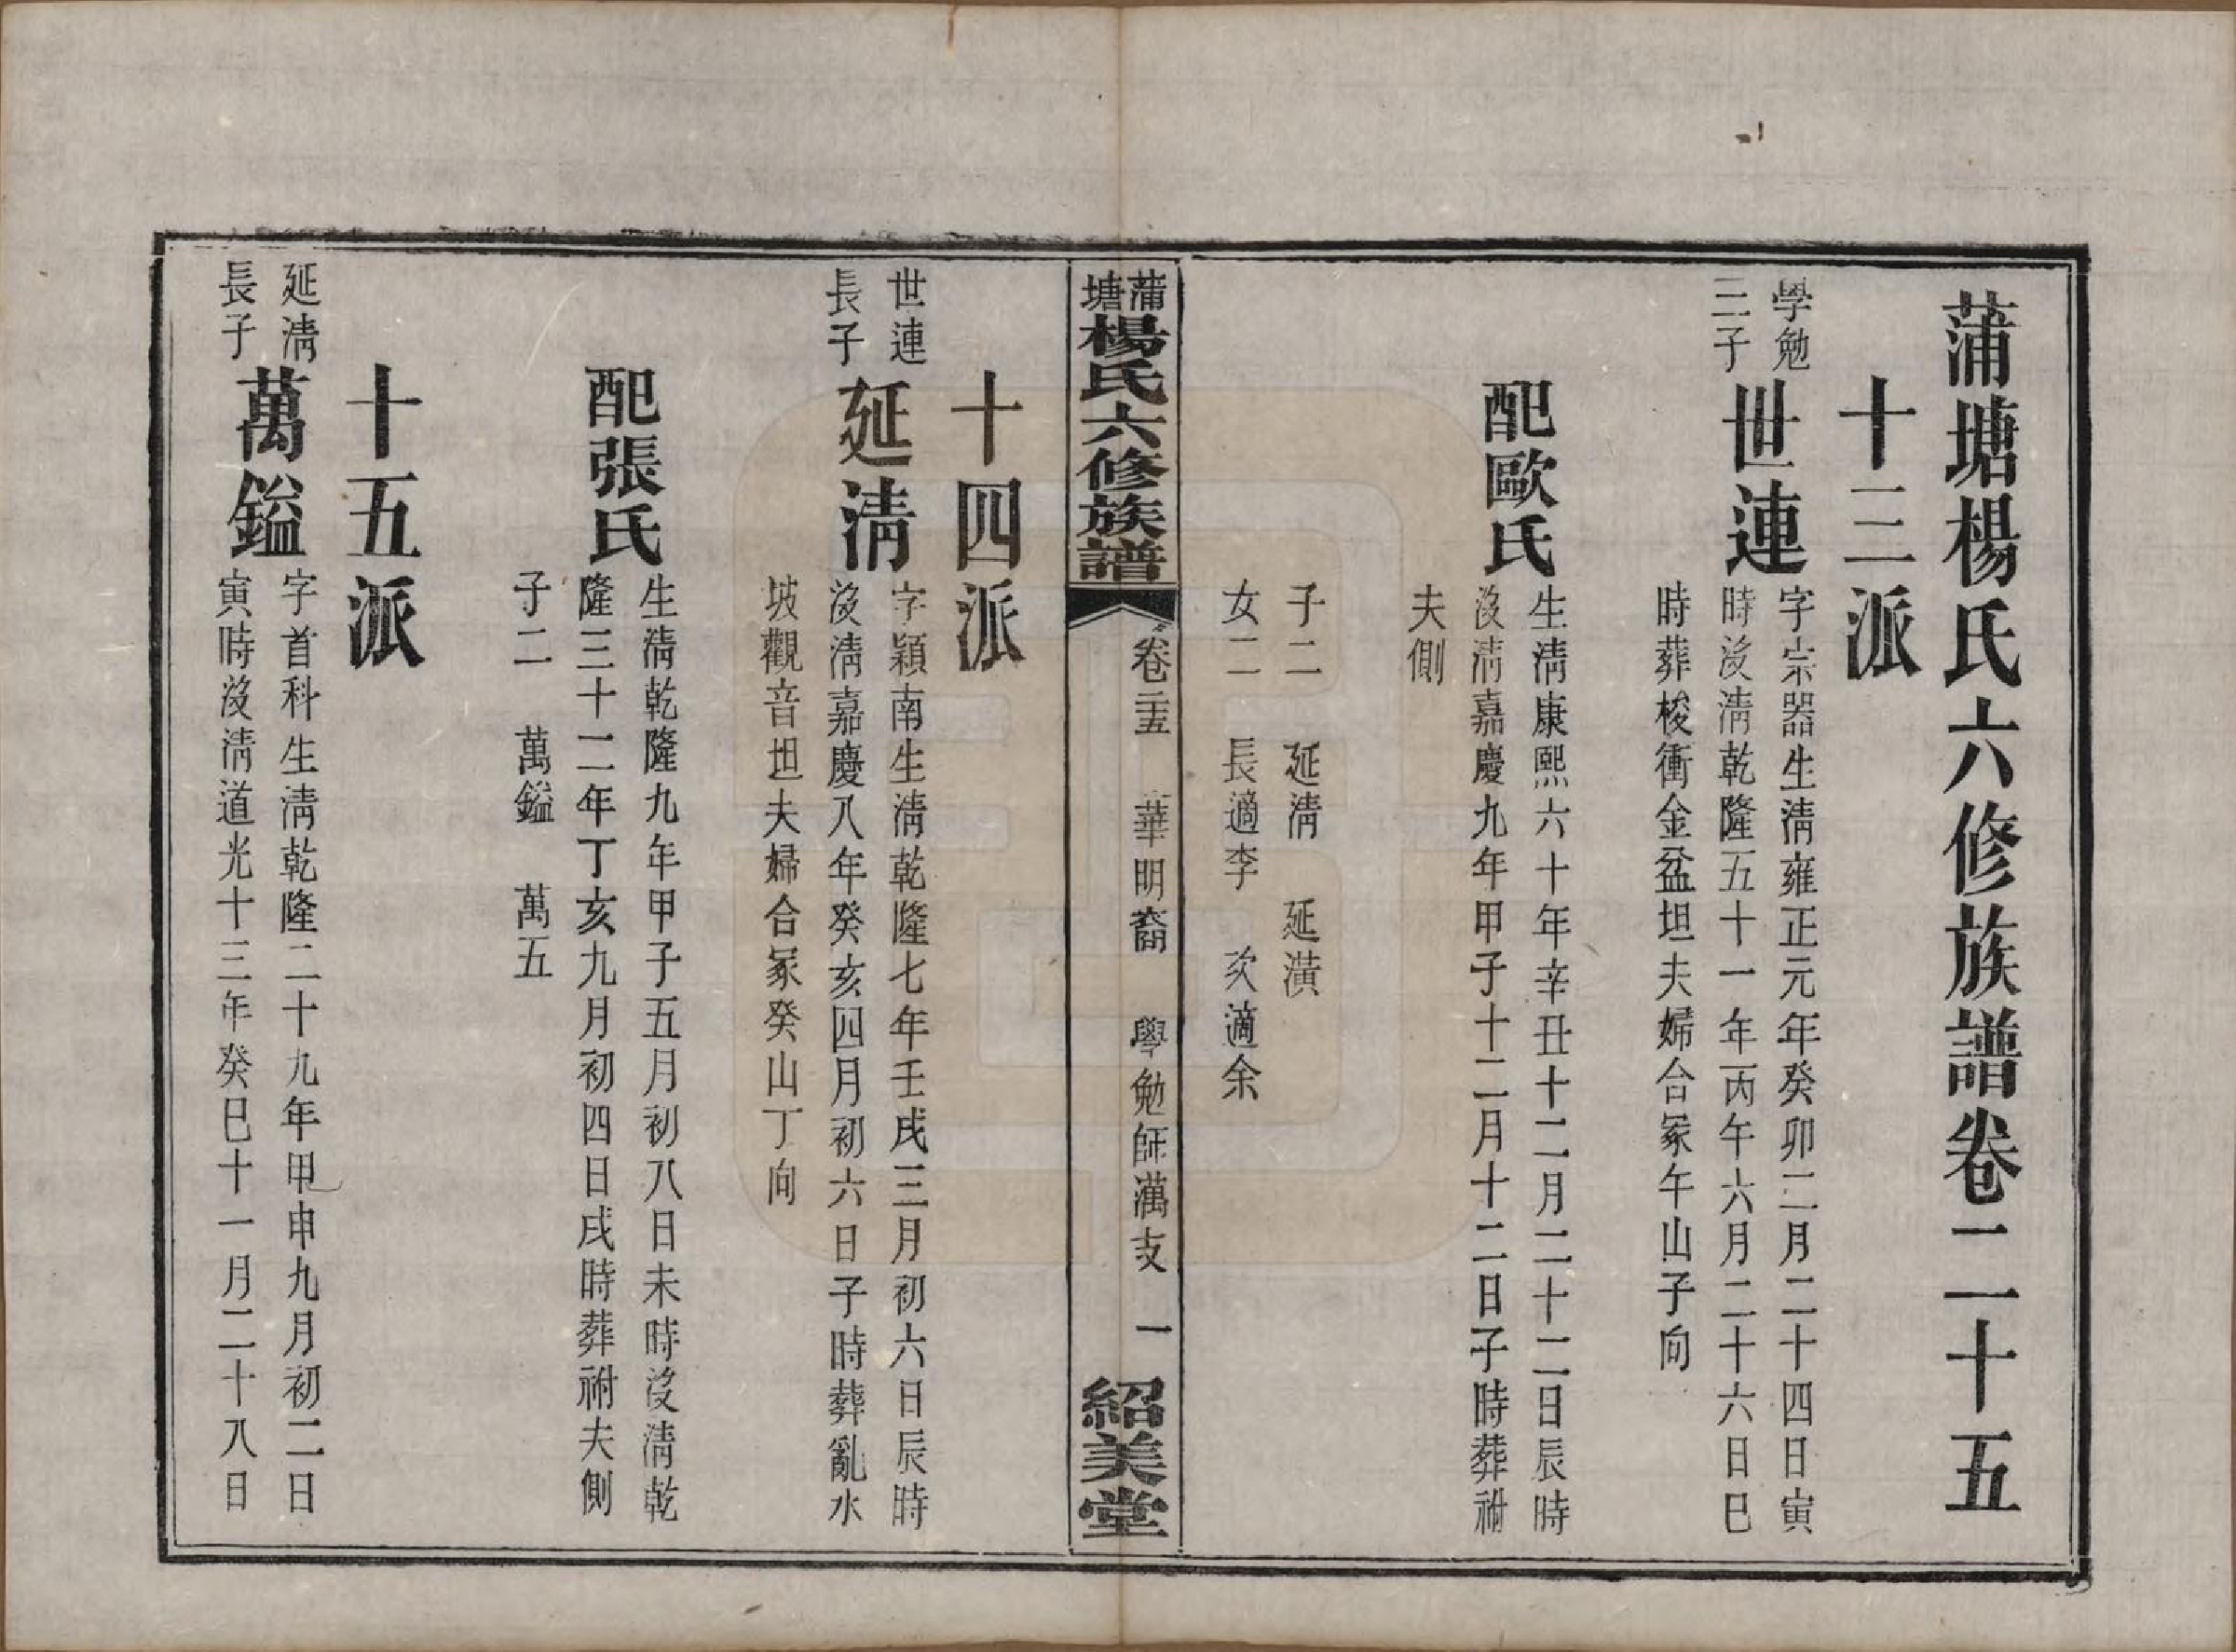 蒲塘楊氏六修族譜卷二十五
十三派
學勉
三子
世連
字宗器生淸雍正元年癸卯二月二十四日寅
時沒淸乾隆五十一年丙午六月二十六日巳
時葬梭衝金盆坦夫婦合冢午山子向
配歐氏
生淸康熙六十年辛丑十二月二十二日辰時
沒淸嘉慶九年甲子十二月十二日子時葬祔
夫側
子二 延淸 延潢
女二 長適李 次適余
蒲塘楊氏六修族譜
卷二十五 華明裔 學勉師萬支 一
紹美堂
十四派
世連
長子
延淸
字穎南生淸乾隆七年壬戌三月初六日辰時
沒淸嘉慶八年癸亥四月初六日子時葬亂水
坡觀音坦夫婦合冢癸山丁向
配張氏
生淸乾隆九年甲子五月初八日未時沒淸乾
隆三十二年丁亥九月初四日戌時葬祔夫側
子二 萬鎰 萬五
十五派
延淸
長子
萬鎰
字首科生淸乾隆二十九年甲申九月初二日
寅時沒淸道光十三年癸巳十一月二十八日